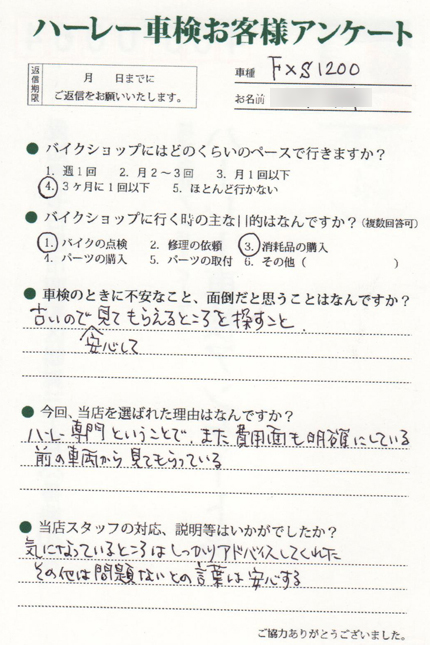 ハーレー車検お客様アンケート
返信期限
月 日までに
ご返信をお願いいたします。
車種 FXS1200
お名前
● バイクショップにはどのくらいのペースで行きますか？
1. 週1回 2. 月2～3回 3. 月1回以下
4. 3ヶ月に1回以下 5. ほとんど行かない
● バイクショップに行く時の主な目的はなんですか？(複数回答可)
1. バイクの点検 2. 修理の依頼 3. 消耗品の購入
4. パーツの購入 5. パーツの取付 6. その他（ ）
● 車検のときに不安なこと、面倒だと思うことはなんですか？
古いので見てもらえるところを探すこと.
安心して
● 今回、当店を選ばれた理由はなんですか？
ハーレー専門ということで、また費用面も明確にしている
前の車両から見てもらっている
● 当店スタッフの対応、説明等はいかがでしたか？
気になっているところはしっかりアドバイスしてくれた
その他は問題ないとの言葉は安心する
ご協力ありがとうございました。